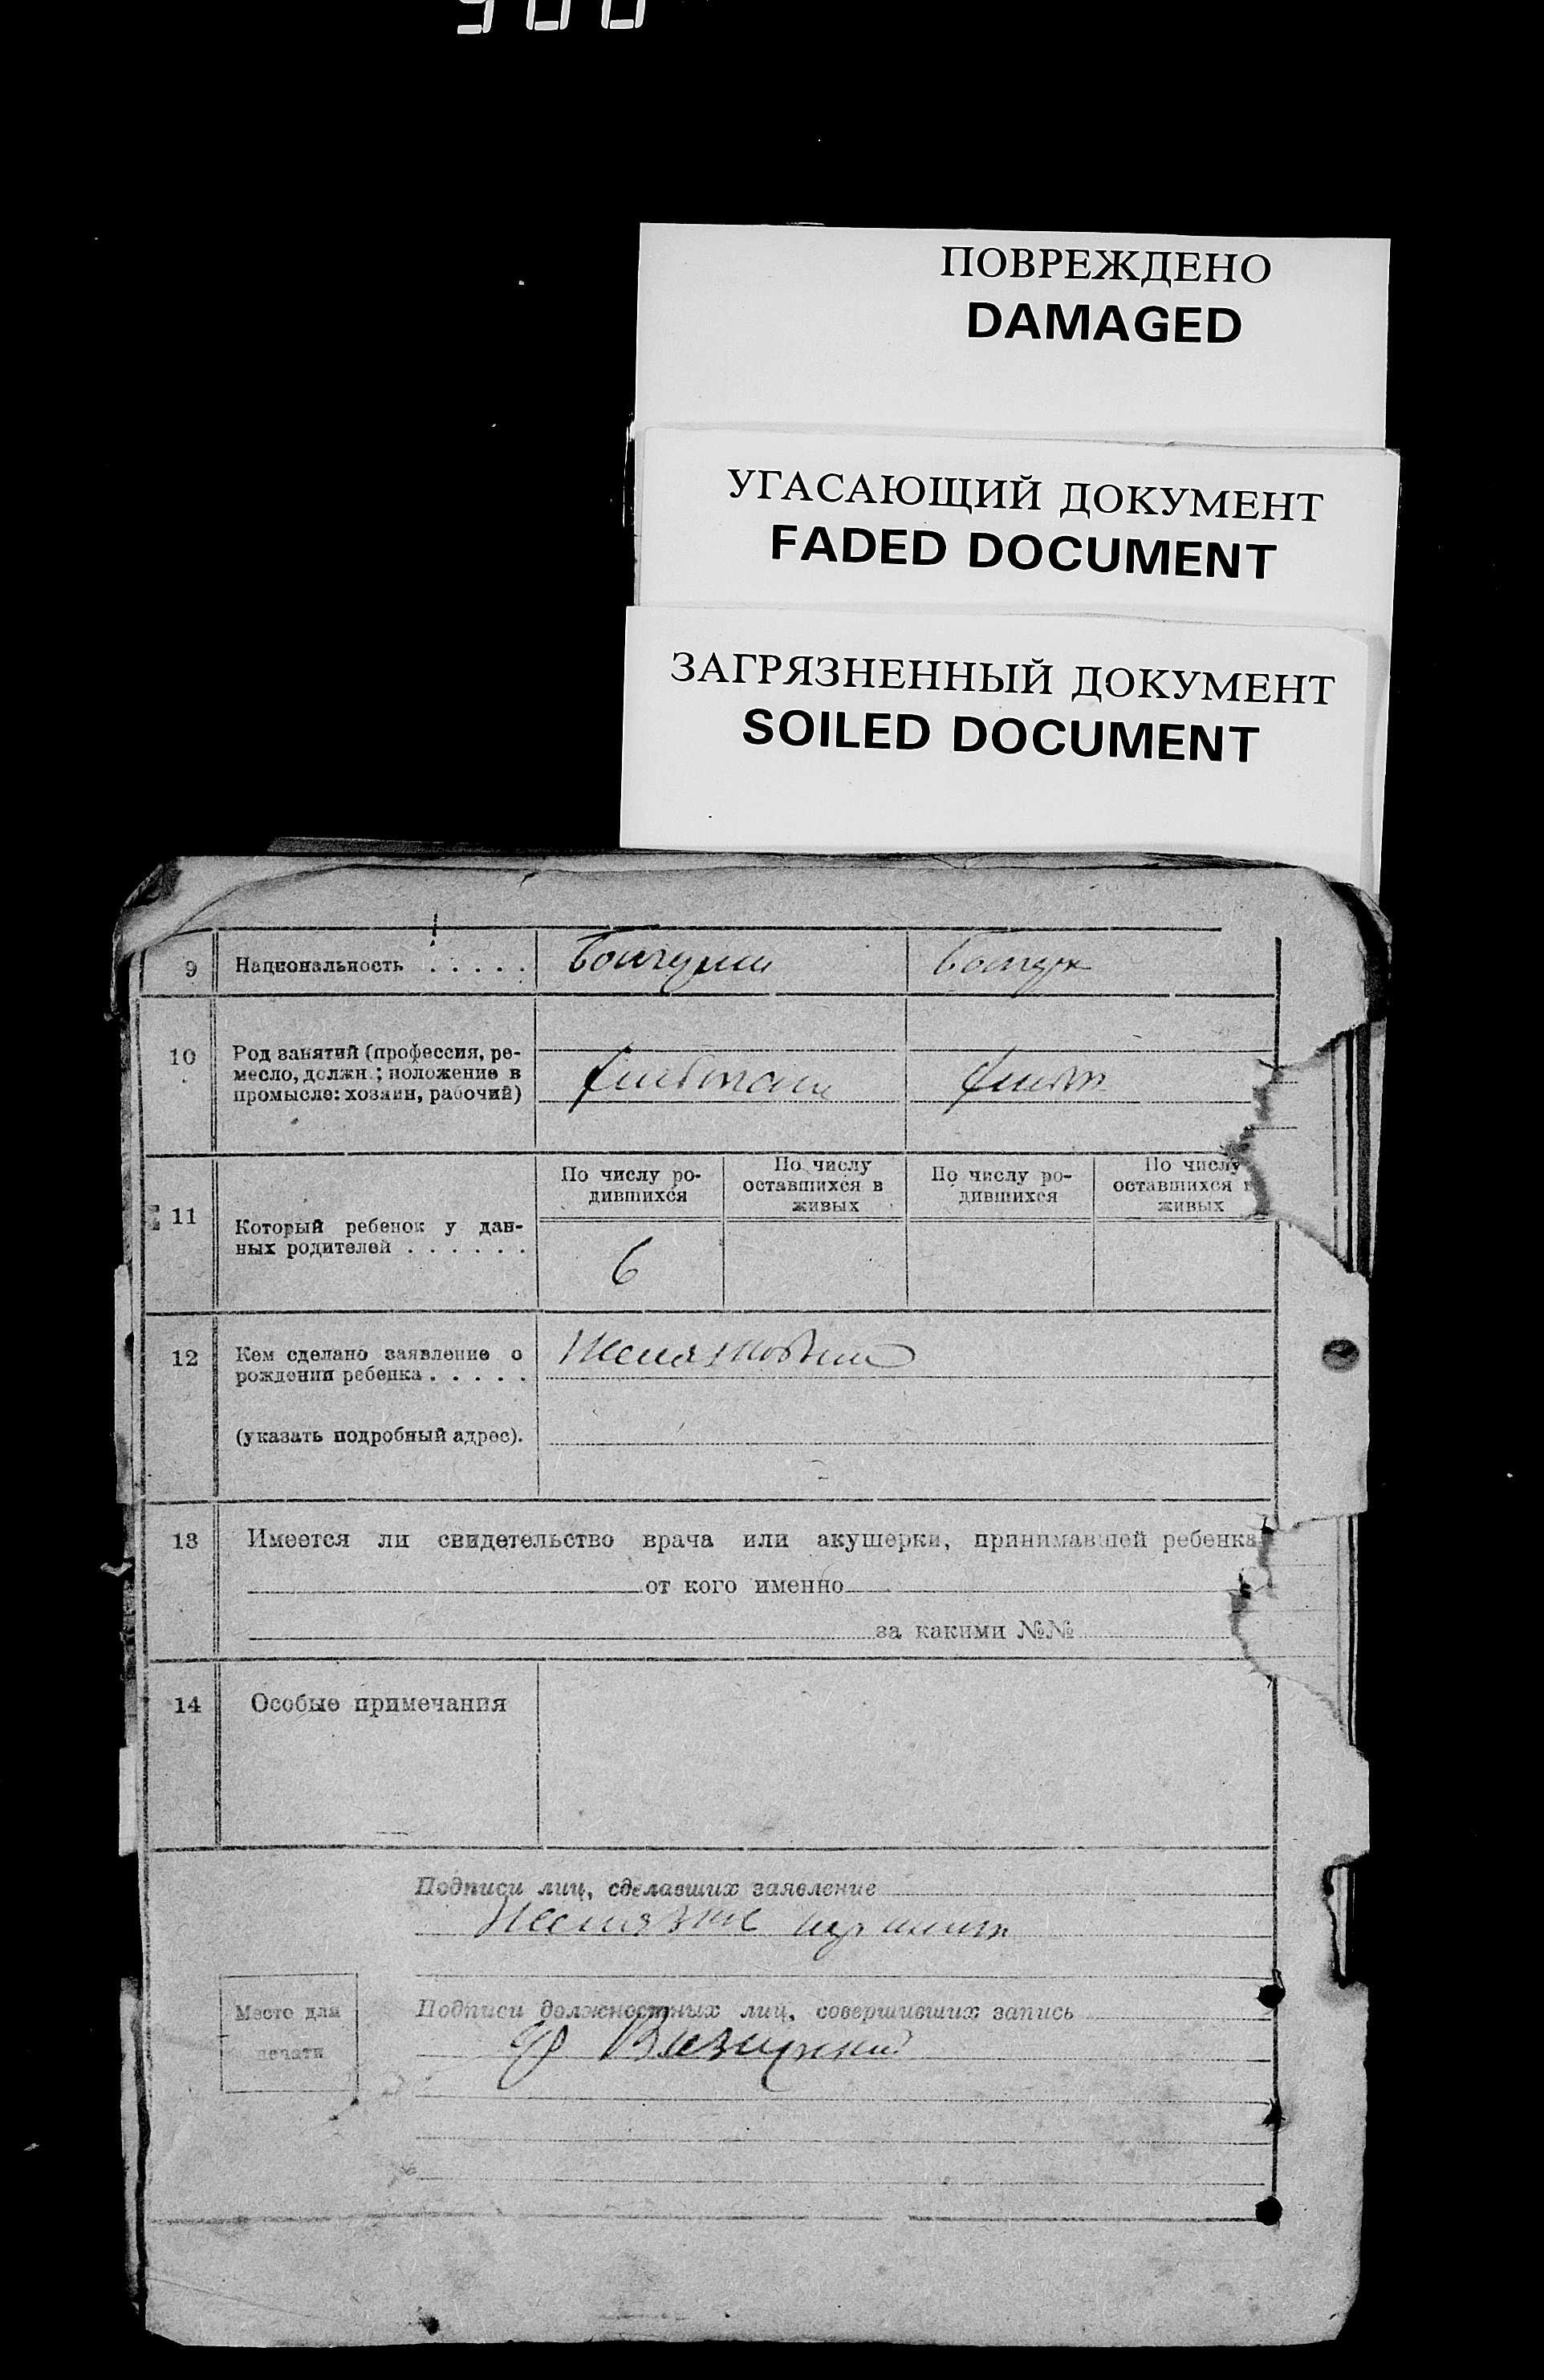 ПОВРЕЖДЕНО
DAMAGED
УГАСАЮЩИЙ ДОКУМЕНТ
FADED DOCUMENT
ЗАГРЯЗНЕННЫЙ ДОКУМЕНТ
SOILED DOCUMENT
9 Национальность . . . . .
10 Род занятий (профессия, ре-
месло, должн.; положение в
промысле: хозяин, рабочий)
По числу ро-
дившихся
По числу
оставшихся в
живых
По числу ро-
дившихся
По числу
оставшихся в
живых
11 Который ребенок у дан-
ных родителей . . . . . .
6
12 Кем сделано заявление о
рождении ребенка . . . . .
(указать подробный адрес).
13 Имеется ли свидетельство врача или акушерки, принимавшей ребенка
от кого именно
за какими №№
14 Особые примечания
Подписи лиц, сделавших заявление
Место для
печати
Подписи должностных лиц, совершивших запись